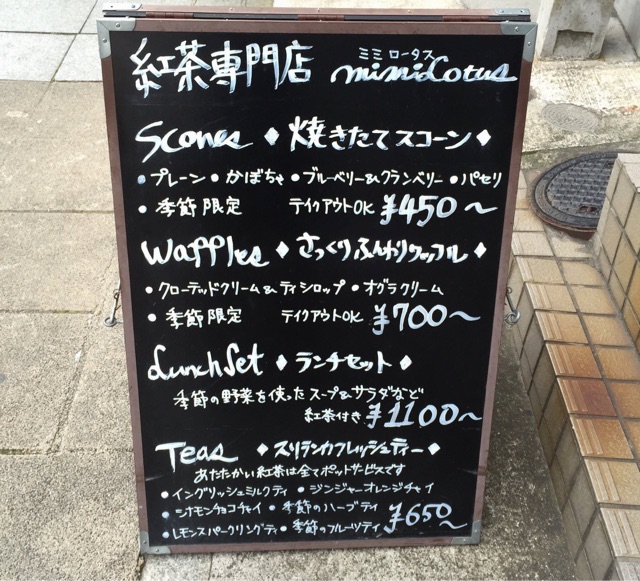 紅茶専門店 ミミ ロータス mimiLotus
Scones ◆ 焼きたてスコーン ◆
• プレーン • かぼちゃ • ブルーベリー&クランベリー • パセリ
• 季節限定 テイクアウトOK ¥450〜
Waffles ◆ さっくりふんわりワッフル ◆
• クローテッドクリーム&ティシロップ • オグラクリーム
• 季節限定 テイクアウトOK ¥700〜
Lunch Set ◆ ランチセット ◆
季節の野菜を使ったスープ&サラダなど
紅茶付き ¥1100〜
Teas ◆ スリランカフレッシュティー ◆
あたたかい紅茶は全てポットサービスです
• イングリッシュミルクティ • ジンジャーオレンジチャイ
• シナモンチョコチャイ • 季節のハーブティ ¥650〜
• レモンスパークリングティ • 季節のフルーツティ